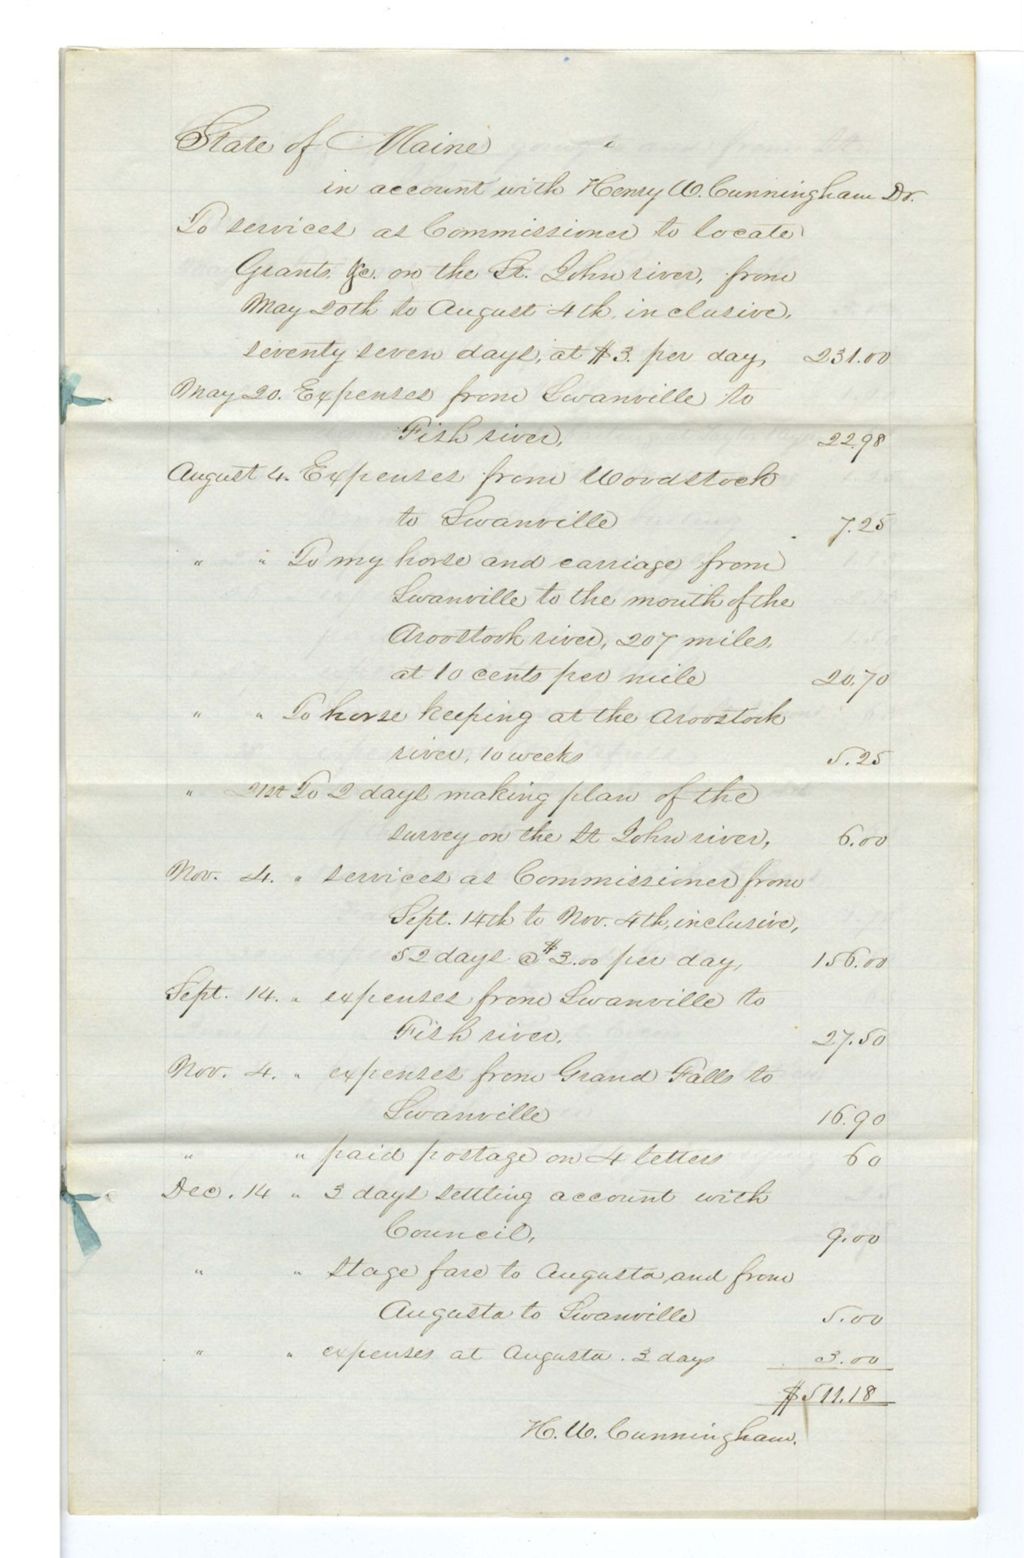 State of Maine
in account with Henry W. Cunningham Dr.
To services as Commissioner to locate
Grants &c. on the St. John river, from
May 20th to August 4th, inclusive,
seventy seven days, at $3. per day, 231.00
May 20. Expenses from Swanville to
Fish river, 22.98
August 4. Expenses from Woodstock
to Swanville 7.25
" " To my horse and carriage from
Swanville to the mouth of the
Aroostook river, 207 miles,
at 10 cents per mile 20.70
" " To horse keeping at the Aroostook
river, 10 weeks 5.25
" 21st To 2 days making plan of the
survey on the St John river, 6.00
Nov. 4. " services as Commissioner from
Sept. 14th to Nov. 4th, inclusive,
52 days @ $3.00 per day, 156.00
Sept. 14. " expenses from Swanville to
Fish river. 27.50
Nov. 4. " expenses from Grand Falls to
Swanville 16.90
" " paid postage on 4 letters 60
Dec. 14 " 3 days settling account with
Council, 9.00
" " stage fare to Augusta, and from
Augusta to Swanville 5.00
" " expenses at Augusta. 3 days 3.00
$511.18
H. W. Cunningham.